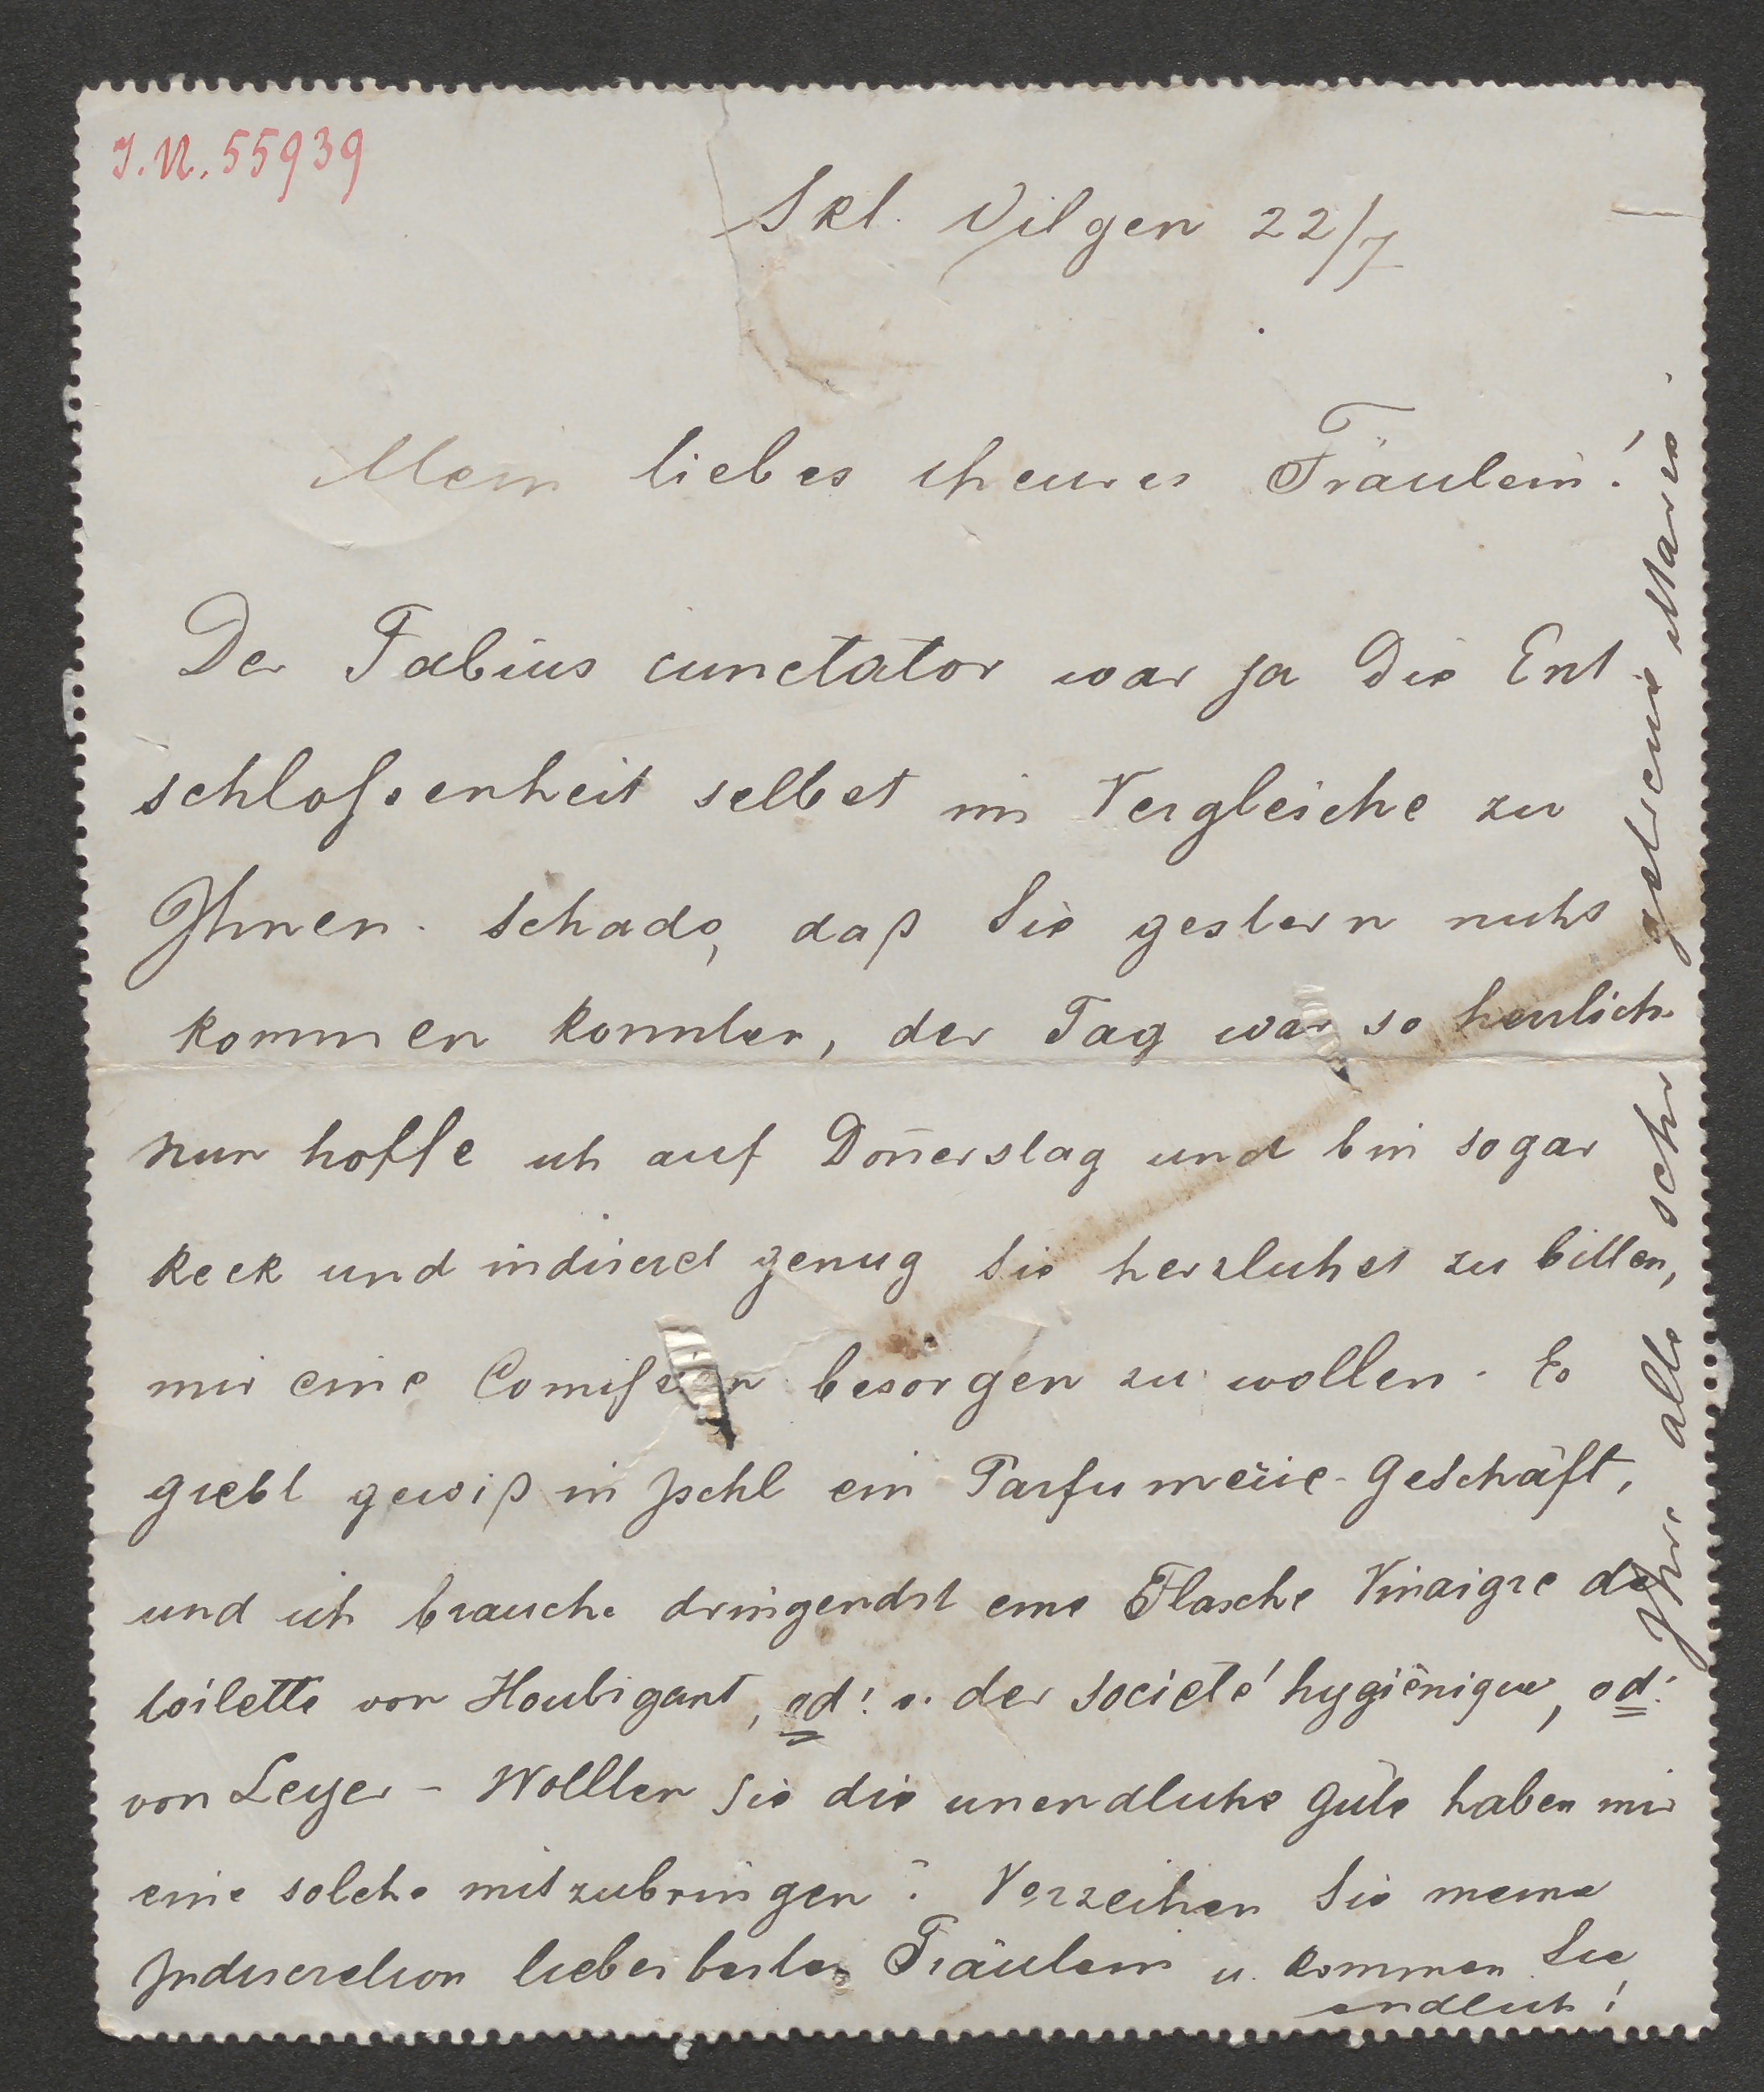 I.N. 55939
Skt. Gilgen 22/7
Mein liebes theures Fräulein!
Der Fabius cunctator war ja die Ent
schloßenheit selbst im Vergleiche zu
Ihnen. Schade, daß Sie gestern nicht
kommen konnten, der Tag war so herrlich
nun hoffe ich auf Doñerstag und bin sogar
keck und indiscret genug Sie herzlichst zu bitten,
mir eine Comißsion besorgen zu wollen. Es
giebt gewiß in Ischl ein Parfumerie-Geschäft,
und ich brauche dringendst eine Flasche Vinaigre de
toilette von Houbigant, od: v. der societé hygiènique, od:
von Leyer - Wollten Sie die unendliche Güte haben mir
eine solche mitzubringen? Verzeihen Sie meine
Indiscretion liebes bestes Fräulein u. kommen Sie
endlich!
Ihre alte, sehr getreue Marie.